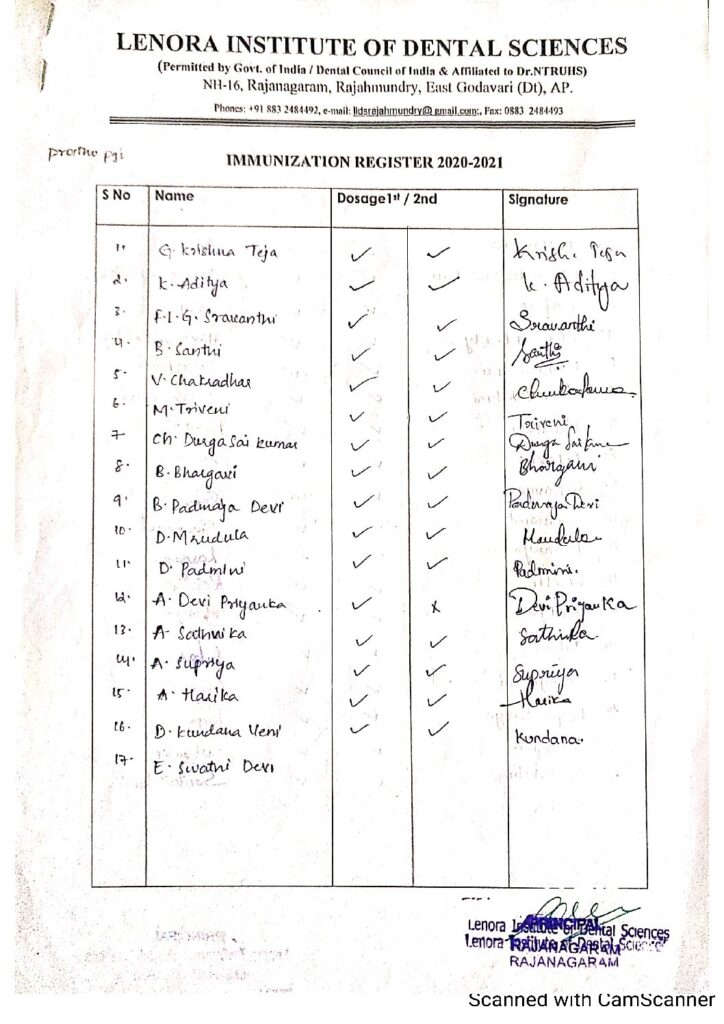 LENORA INSTITUTE OF DENTAL SCIENCES
(Permitted by Govt. of India / Dental Council of India & Affiliated to Dr.NTRUHS)
NH-16, Rajanagaram, Rajahmundry, East Godavari (Dt), AP.
Phones: +91 883 2484492, e-mail: lidsrajahmundry@gmail.com:, Fax: 0883 2484493
IMMUNIZATION REGISTER 2020-2021
S No Name Dosage1st / 2nd Signature
1. G. Krishna Teja ✓ ✓ Krish. Teja
2. K. Aditya ✓ ✓ K. Aditya
3. F.L.G. Sravanthi ✓ ✓ Sravanthi
4. B. Santhi ✓ ✓ Santhi
5. V. Chakradhar ✓ ✓
6. M. Triveni ✓ ✓ Triveni
7. Ch. Durga Sai Kumar ✓ ✓ Durga Sai
8. B. Bhargavi ✓ ✓ Bhargavi
9. B. Padmaja Devi ✓ ✓ Padmaja Devi
10. D. Mrudula ✓ ✓ Mrudula
11. D. Padmini ✓ ✓ Padmini.
12. A. Devi Priyanka ✓ x Devi Priyanka
13. A. Sathvika ✓ ✓ Sathvika
14. A. Supriya ✓ ✓ Supriya
15. A. Harika ✓ ✓ Harika
16. D. Kundana Veni ✓ ✓ Kundana.
17. E. Swathi Devi
PRINCIPAL
Lenora Institute of Dental Sciences
Lenora Institute of Dental Sciences
RAJANAGARAM
RAJANAGARAM
Scanned with CamScanner